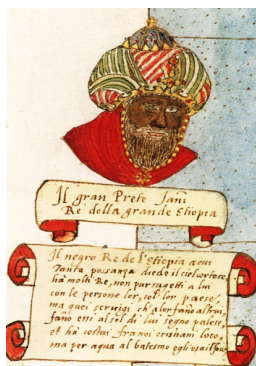 Il gran Prete Iani
Re della grande Etiopia
Il negro Re de l'Etiopia a cui
Tanta possanza diede il ciel
ha molti Re, non pur sugetti a lui
con le persone lor, col lor paese,
ma quei seruigi ch'a lor fano altrui,
fano eßi al sol di lui segno palese,
et ha costui franci cristiani loco,
ma por aqua al batesmo egli usa il fuoco